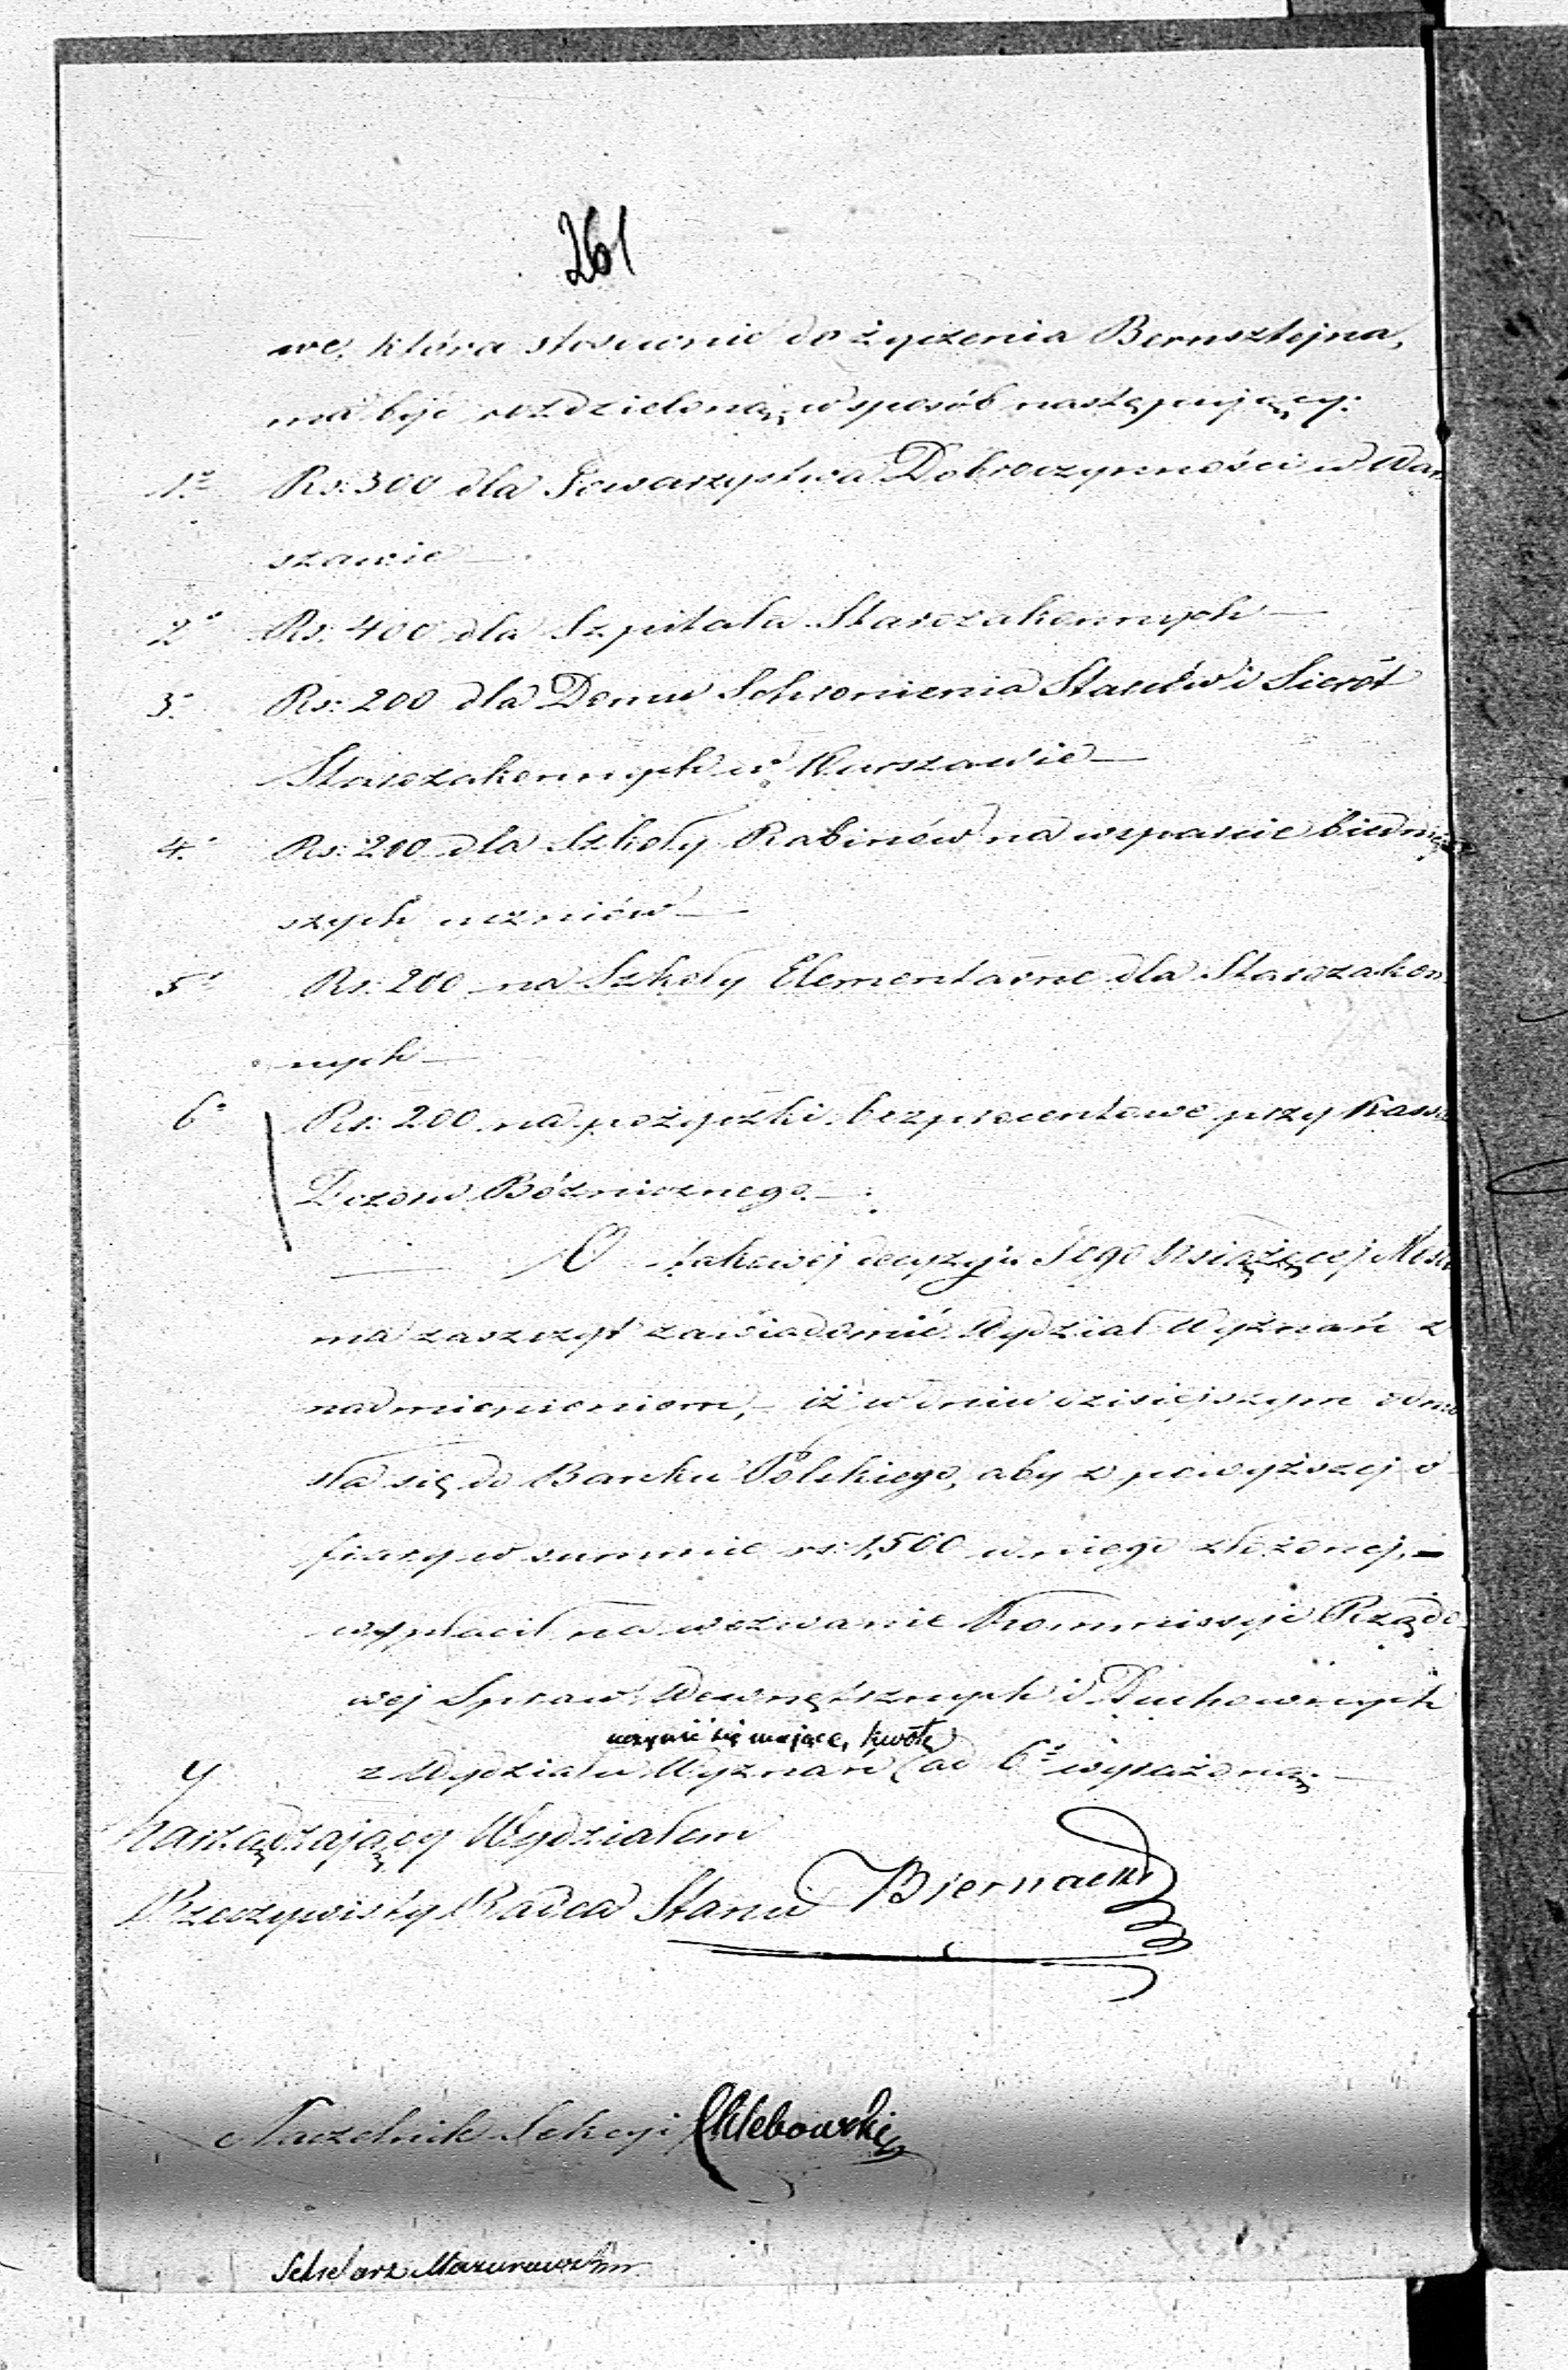 261
we, która stosownie do życzenia Bernsztejna,
ma być rozdzieloną w sposób następujący:
1º Rs: 300 dla Towarzystwa Dobroczynności w War
szawie —
2º Rs: 400 dla Szpitala Starozakonnych —
3º Rs: 200 dla Domu Schronienia Starców i Sierót
Starozakonnych w Warszawie —
4º Rs: 200 dla Szkoły Rabinów na wsparcie biedniej
szych uczniów —
5º Rs: 200 na Szkoły Elementarne dla Starozakon
nych —
6º Rs: 200 na pożyczki bezprocentowe przy Kassie
Dozoru Bóźnicznego. —
O takowej decyzyi Jego Książęcej Mości
ma zaszczyt zawiadomić Wydział Wyznań z
nadmienieniem, iż w dniu dzisiejszym odnio
sła się do Banku Polskiego, aby z powyższej o
fiary w summie rs: 1,500 w niego złożonej, —
wypłacił na wezwanie Kommissyi Rządo
wej Spraw Wewnętrznych i Duchownych
uczynić się mające, kwotę
z Wydziału Wyznań (ad 6º wyrażoną. —
Zarządzający Wydziałem
Rzeczywisty Radca Stanu Biernacki
Naczelnik Sekcyi Chlebowski
Sekretarz